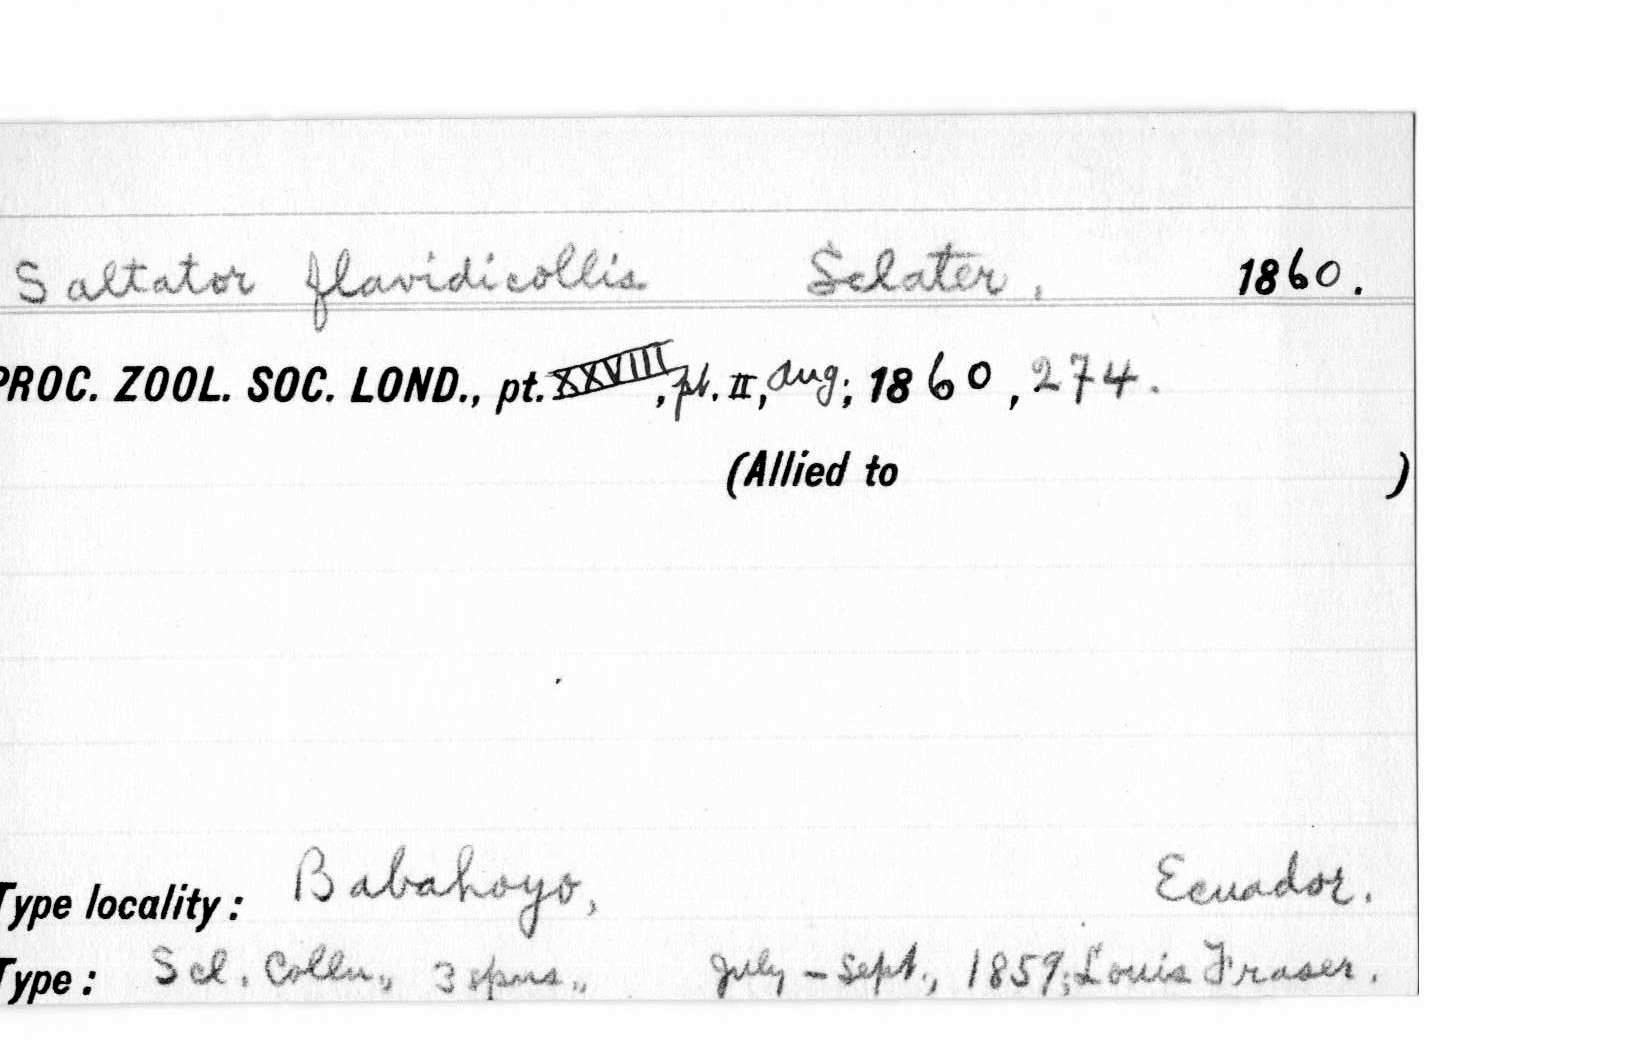 Saltator flavidicollis Sclater, 1860.
PROC. ZOOL. SOC. LOND., pt. XXVIII, pt. II, Aug; 1860, 274.
(Allied to )
Type locality: Babahoyo, Ecuador.
Type: Scl. Colln., 3 spns., July - Sept., 1859; Louis Fraser.